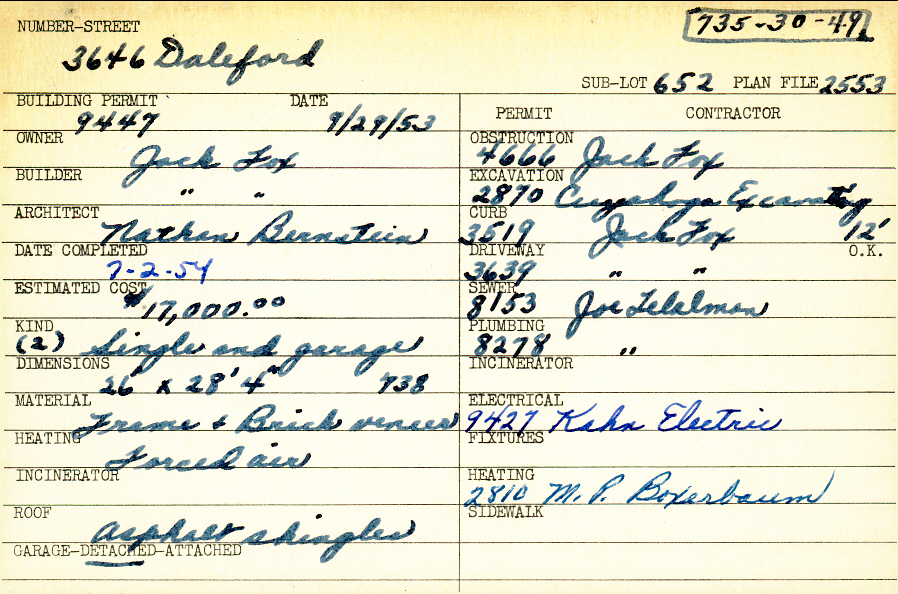 735-30-49
NUMBER-STREET
3646 Daleford
SUB-LOT 652 PLAN FILE 2553
BUILDING PERMIT DATE
9447 9/29/53
OWNER
Jack Fox
BUILDER
" "
ARCHITECT
Nathan Bernstein
DATE COMPLETED
7-2-54
ESTIMATED COST
$17,000.00
KIND
(2) Single and garage
DIMENSIONS
26 x 28' 4" 738
MATERIAL
Frame & Brick veneer
HEATING
Forced air
INCINERATOR
ROOF
Asphalt shingles
GARAGE-DETACHED-ATTACHED
PERMIT CONTRACTOR
OBSTRUCTION
4666 Jack Fox
EXCAVATION
2870 Cuyahoga Excavating
CURB
3519 Jack Fox 12'
DRIVEWAY O.K.
3639 " "
SEWER
8153 Joe
PLUMBING
8278 "
INCINERATOR
ELECTRICAL
9427 Kahn Electric
FIXTURES
HEATING
2810 M. P. Boxerbaum
SIDEWALK